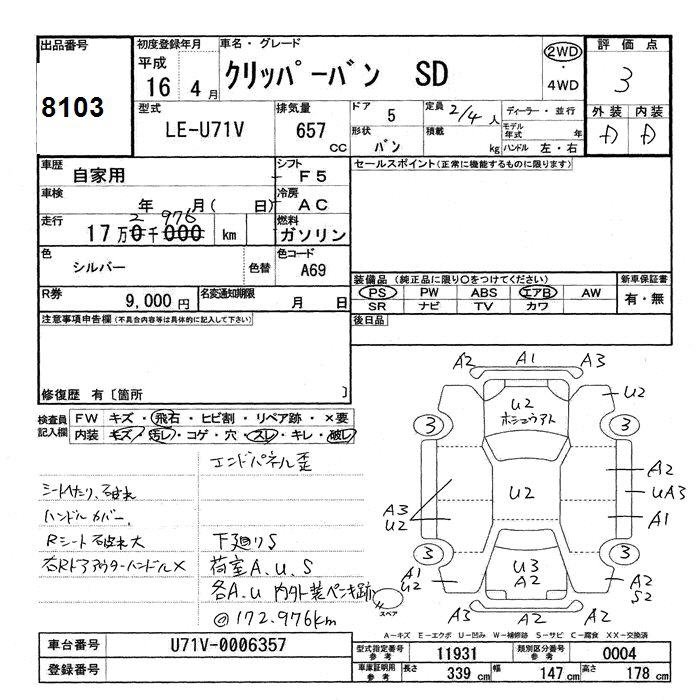 出品番号
8103
初度登録年月
平成
16 年 4 月
車名・グレード
クリッパーバン SD
2WD
・
4WD
評価点
3
型式
LE-U71V
排気量
657 cc
ドア
5
定員
2/4 人
ディーラー・並行
形状
バン
積載
kg
モデル年式
年
ハンドル 左・右
外装 内装
D D
車歴
自家用
シフト
F5
セールスポイント(正常に機能するものに限ります)
車検
年 月( 日)
冷房
AC
走行
2 976
17万0千000 km
燃料
ガソリン
色
シルバー
色替
色コード
A69
装備品 (純正品に限り○をつけてください)
新車保証書
R券
9,000 円
名変通知期限
月 日
PS PW ABS エアB AW
有・無
SR ナビ TV カワ
注意事項申告欄(不具合内容等は具体的に記入して下さい)
後日品
修復歴 有〔箇所 〕
検査員記入欄
FW キズ・飛石・ヒビ割・リペア跡・×要
内装 キズ・汚レ・コゲ・穴・スレ・キレ・破レ
エンドパネル歪
シートへたり、破れ
ハンドルカバー、
Rシート破れ大
下廻りS
右Rドアアウターハンドル×
荷室A.U.S
各A.U 内外装ペンキ跡
@172.976km
A2 A1 A3
U2
U2
3 3
A2
U2
UA3
A3
U2
A1
3 3
A1
U2
U3
A2
A2
S2
スペア
A3 A2 A2
A-キズ E-エクボ U-凹み W-補修跡 S-サビ C-腐食 XX-交換済
車台番号
U71V-0006357
登録番号
型式指定番号
参考
11931
類別区分番号
参考
0004
車庫証明用
参考
長さ 339 cm 幅 147 cm 高さ 178 cm